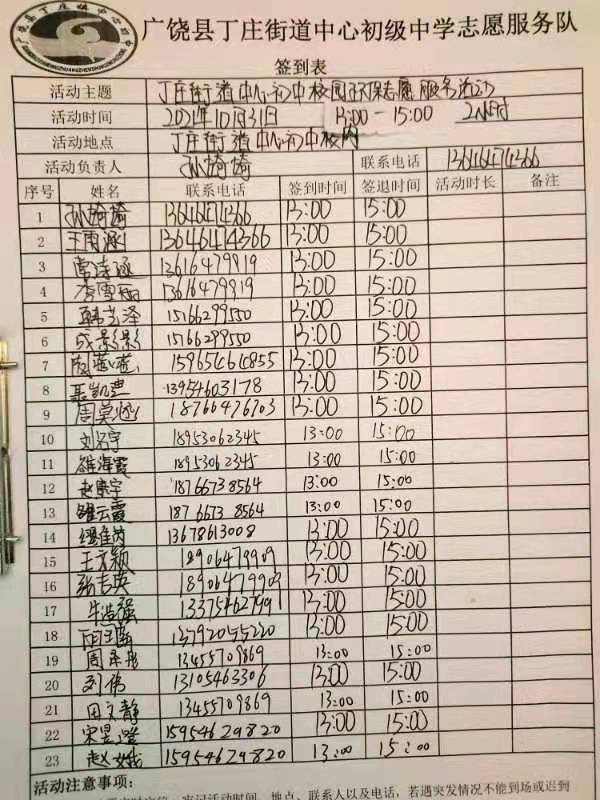 广饶县丁庄街道中心初级中学志愿服务队
签到表
活动主题 丁庄街道中心初中校园环保志愿服务活动
活动时间 2021年10月31日 13:00-15:00 2小时
活动地点 丁庄街道中心初中校内
活动负责人 孙娇娇 联系电话 13646474366
序号 姓名 联系电话 签到时间 签退时间 活动时长 备注
1 孙娇娇 13646474366 13:00 15:00
2 王雨涵 13646474366 13:00 15:00
3 常诗涵 13616479919 13:00 15:00
4 李雪丽 13616479919 13:00 15:00
5 韩兰泽 15166299550 13:00 15:00
6 成影影 15166299550 13:00 15:00
7 15965464855 13:00 15:00
8 聂凯悝 13954603178 13:00 15:00
9 周莫 18766476703 13:00 15:00
10 刘名宇 18953062345 13:00 15:00
11 海霞 18953062345 13:00 15:00
12 赵崇宇 18766738564 13:00 15:00
13 云霞 18766738564 13:00 15:00
14 13678613008 13:00 15:00
15 王文颖 18906479909 13:00 15:00
16 张志英 18906479909 13:00 15:00
17 牛浩强 13375462799 13:00 15:00
18 13792055220 13:00 15:00
19 周彤 13455709869 13:00 15:00
20 刘伟 13105463306 13:00 15:00
21 田文静 13455709869 13:00 15:00
22 宋昱澄 15954629820 13:00 15:00
23 赵娥 15954629820 13:00 15:00
活动注意事项：
活动时间、地点、联系人以及电话，若遇突发情况不能到场或迟到